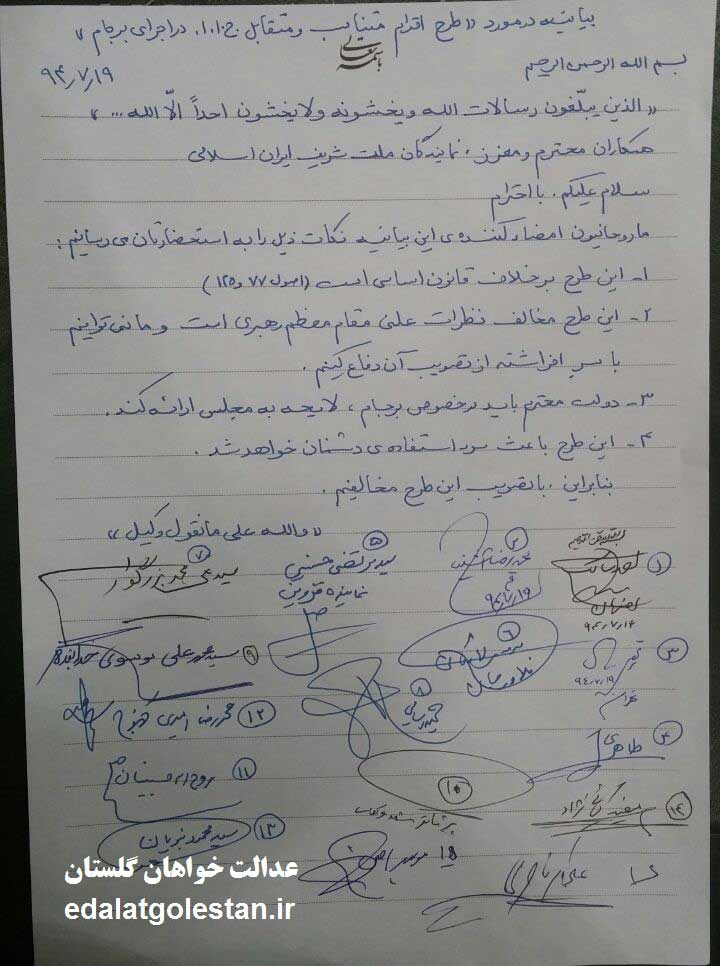 بیانیه در مورد «طرح اقدام متناسب و متقابل ج.ا.ا. در اجرای برجام»
باسمه تعالی
بسم الله الرحمن الرحیم
۹۴/۷/۱۹
«الذین یبلّغون رسالات الله و یخشونه ولا یخشون احداً الّا الله ...»
همکاران محترم و معزز، نمایندگان ملت شریف ایران اسلامی
سلام علیکم. با احترام
ما روحانیون امضاء کننده‌ی این بیانیه نکات ذیل را به استحضارتان می رسانیم:
۱- این طرح بر خلاف قانون اساسی است (اصول ۷۷ و ۱۲۵)
۲- این طرح مخالف نظرات علنی مقام معظم رهبری است و ما نمی توانیم
با سرِ افراشته از تصویب آن دفاع کنیم.
۳- دولت محترم باید در خصوص برجام، لایحه به مجلس ارائه کند.
۴- این طرح باعث سوء استفاده‌ی دشمنان خواهد شد.
بنابراین، با تصویب این طرح مخالفیم.
«والله علی ما نقول وکیل»
۱
۹۴/۷/۱۹
۲
محمدرضا
۹۴/۷/۱۹
۳
۹۴/۷/۱۹
تهران
۴ طاهری
۵
سید مرتضی حسینی
نماینده قزوین
۶
۷
سید محمد بزرگوار
۸
حمید رسایی
۹ سید محمد علی موسوی
۱۰
۱۱ روح اله حسینیان
۱۲ محمدرضا امیری کهنوج
۱۳ سید محمود نبویان
۱۴
عدالت خواهان گلستان
edalatgolestan.ir